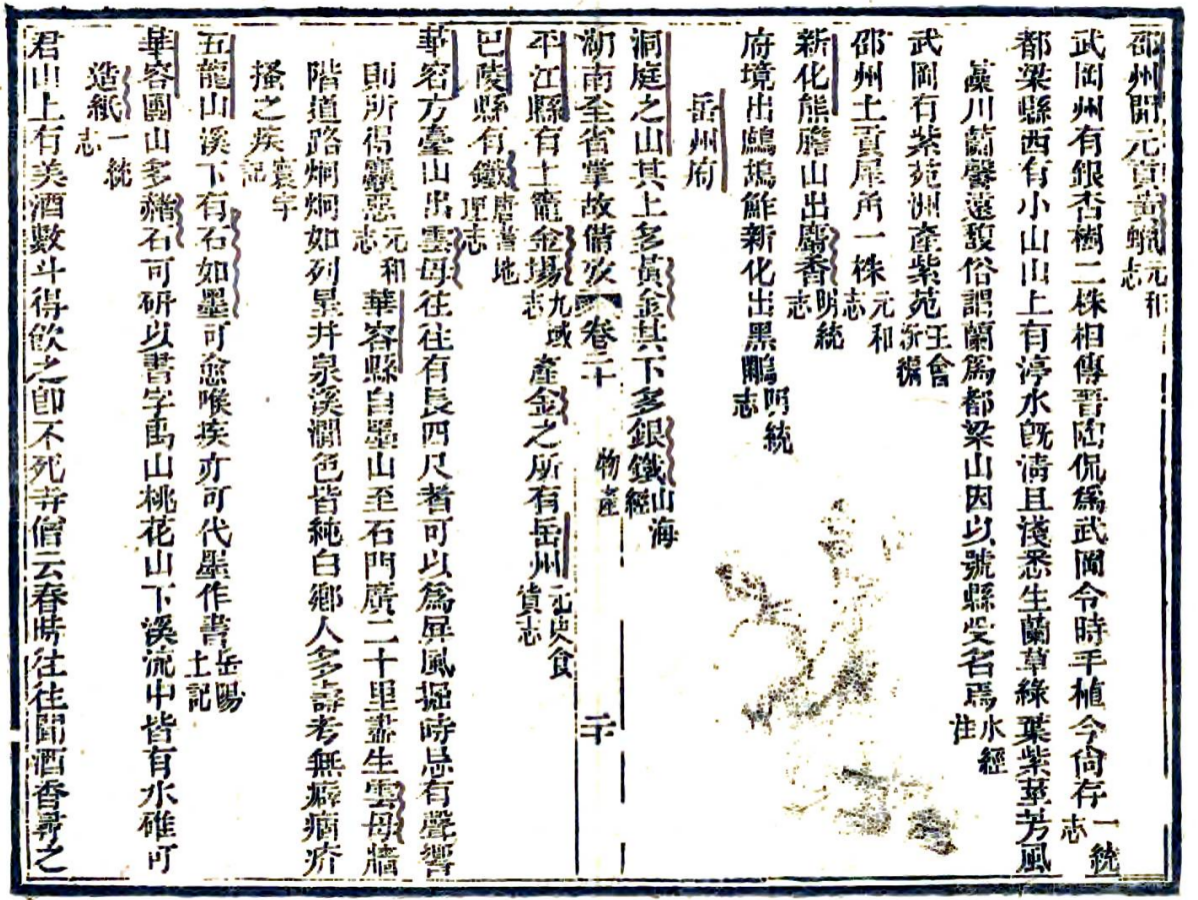 邵州開元貢黃蠟元和志
武岡州有銀杏樹二株相傳晉陶侃爲武岡令時手植今尙存一統志
都梁縣西有小山山上有渟水旣淸且淺悉生蘭草綠葉紫莖芳風
藻川蘭馨遠馥俗謂蘭爲都梁山因以號縣受名焉水經注
武岡有紫苑洲產紫苑王會新編
邵州土貢犀角一株元和志
新化熊膽山出麝香明統志
府境出鷓鴣鮓新化出黑鵰明統志
岳州府
洞庭之山其上多黃金其下多銀鐵山海經
湖南全省掌故備攷 卷二十 物產 二十
平江縣有土龍金場九域志產金之所有岳州元史食貨志
巴陵縣有鐵唐書地理志
華容方臺山出雲母往往有長四尺者可以爲屏風掘時忌有聲響
則所得麤惡元和志華容縣自墨山至石門廣二十里盡生雲母牆
階道路炯炯如列星井泉溪澗色皆純白鄉人多壽考無癖痼疥
搔之疾寰宇記
五龍山溪下有石如墨可愈喉疾亦可代墨作書岳陽土記
華容團山多赭石可硏以書字禹山桃花山下溪流中皆有水碓可
造紙一統志
君山上有美酒數斗得飮之卽不死寺僧云春時往往聞酒香尋之